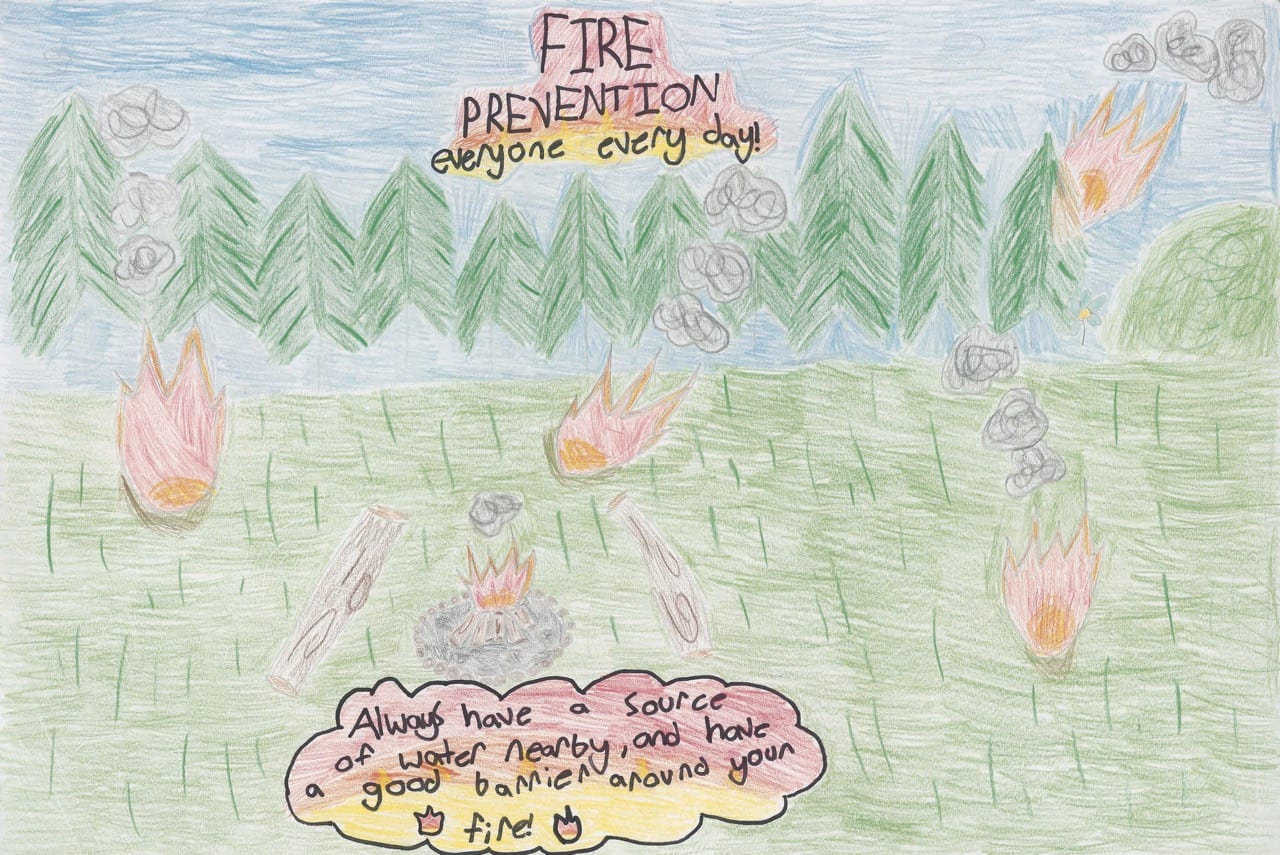 FIRE
PREVENTION
everyone every day!
Always have a source
of water nearby, and have
a good barrier around your
fire!